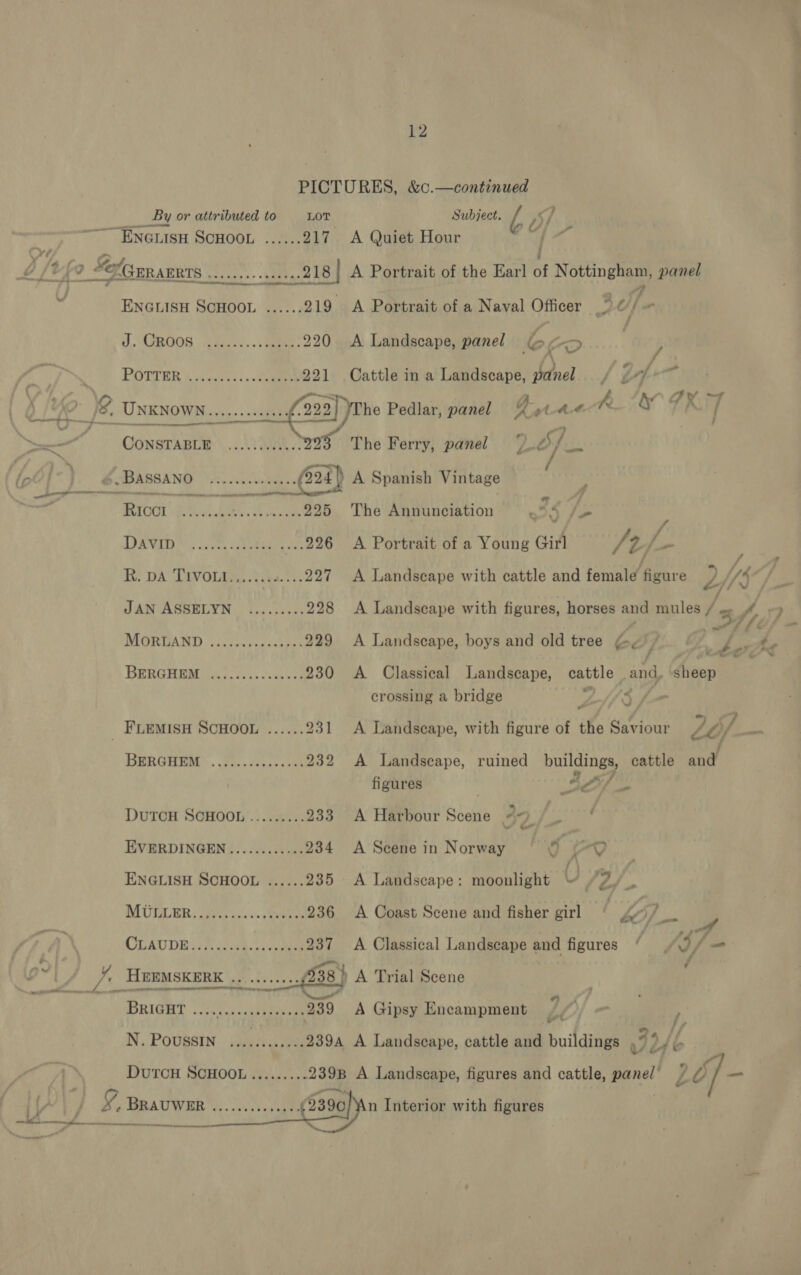 12
PICTURES, &c.—continued
By or attributed to LOT Subject.
ENGLISH SCHOOL ......217 A Quiet Hour 65/-
GERAERTS ...............218 A Portrait of the Earl of Nottingham, panel
ENGLISH SCHOOL ......219 A Portrait of a Naval Officer
J. CROOS ...............220 A Landscape, panel
POTTER ...............221 Cattle in a Landscape, panel
UNKNOWN...............222 The Pedlar, panel
CONSTABLE ............223 The Ferry, panel
BASSANO ...............224 A Spanish Vintage
RICCI ...............225 The Annunciation
DAVID ...............226 A Portrait of a Young Girl 12/-
R. DA TIVOLI............227 A Landscape with cattle and female figure
JAN ASSELYN .........228 A Landscape with figures, horses and mules
MORLAND ...............229 A Landscape, boys and old tree
BERGHEM ...............230 A Classical Landscape, cattle and sheep
crossing a bridge
FLEMISH SCHOOL ......231 A Landscape, with figure of the Saviour
BERGHEM ...............232 A Landscape, ruined buildings, cattle and
figures
DUTCH SCHOOL .........233 A Harbour Scene
EVERDINGEN ............234 A Scene in Norway
ENGLISH SCHOOL ......235 A Landscape: moonlight
MÜLLER...............236 A Coast Scene and fisher girl
CLAUDE...............237 A Classical Landscape and figures
HEEMSKERK ............238 A Trial Scene
BRIGHT ...............239 A Gipsy Encampment
N. POUSSIN ............239A A Landscape, cattle and buildings
DUTCH SCHOOL .........239B A Landscape, figures and cattle, panel
BRAUWER ...............239C An Interior with figures